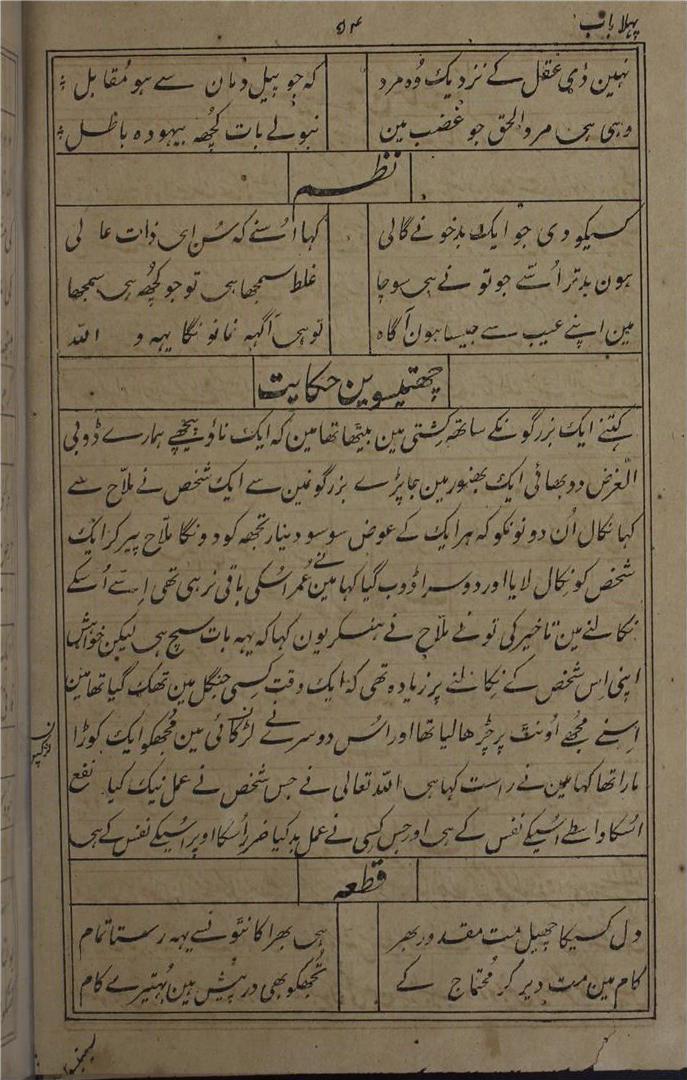 پہلا باب
۵۴
نہین ذی عقل کے نزدیک وہ مرد کہ جو پیل دمان سے ہو مقابل
وہی ہی مرد الحق جو غضب مین نبولے بات کچھہ بیہودہ باطل
نظم
کسیکو دی جو ایک بدخو نے گالی کہا اُسنے کہ سُن ای ذات عالی
ہون بدتر اُسّے جو تو نے ہی سوچا غلط سمجھا ہی تو جو کچھہ ہی سمجھا
مین اپنے عیب سے جیسا ہون آگاہ تو ہی آگہہ نمانونگا یہہ واللہ
چھتیسوین حکایت
کتنے ایک بزرگونکے ساتھہ کشتی مین بیٹھا تھا مین کہ ایک ناؤ پیچھے ہمارے ڈوبی
الغرض دو بھائی ایک بھنور مین جا پڑے بزرگونمین سے ایک شخص نے ملاّح سے
کہا نکال اُن دونونکو کہ ہر ایک کے عوض سو سو دینار تجھہ کو دونگا ملاّح پیر کر ایک
شخص کو نکال لایا اور دوسرا ڈوب گیا کہا مین نے عُمر اُسکی باقی نرہی تھی اِسّے اُسکے
نکالنے مین تاخیر کی تو نے ملاّح نے ہنسکر یون کہا کہ یہہ بات سچ ہی لیکن خواہش
اپنی اِس شخص کے نکالنے پر زیادہ تھی کہ ایک وقت کسی جنگل مین تھک گیا تھا مین
اِسنے مجھے اُونٹ پر چڑھا لیا تھا اور اُس دوسرے نے لڑکائی مین مجھکو ایک کوڑا
مارا تھا کہا مین نے راست کہا ہی اللہ تعالی نے جس شخص نے عمل نیک کیا نفع
اُسکا واسطے اُسیکے نفس کے ہی اور جس کسی نے عمل بد کیا ضرر اُسکا اوپر اُسیکے نفس کے ہی
قطعہ
دل کسیکا چھیل مت مقدور بھر ہی بھرا کانٹونسے یہہ رستا تمام
کام مین مت دیر کر محتاج کے تجھکو بھی درپیش ہین بُہتیرے کام